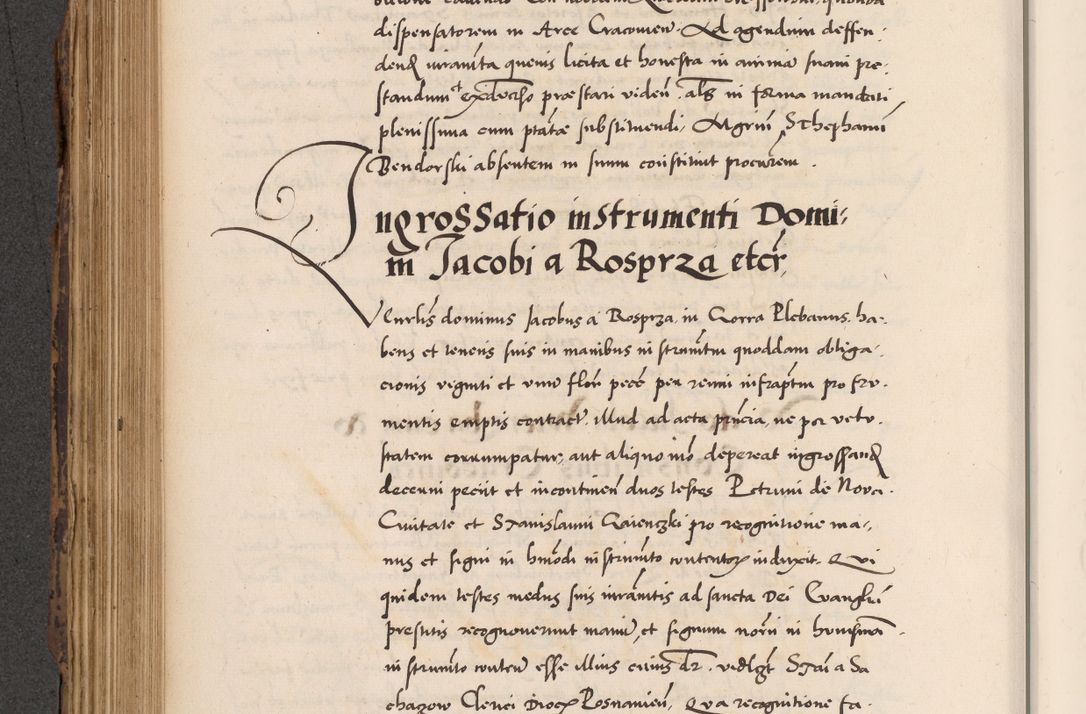 dispensatorem in Arce Cracovien Ad agendum deffen-
dend iuramta quevis licita et honesta in animā suam pre-
standum et praestari viden als in forma mandati
plenissima cum ptāte substituendi Mgrum Sthephanū
Bendorski absentem in suum constituit procurem .
Ingrossatio instrumenti Domi-
ni Jacobi a Rosprza etcr
Venrlis dominus Jacobus a Rosprza in Gorra Plebanus ha-
bens et tenens suis in manibus instrumtm quoddam obliga-
cionis viginti et unius flon pecc per infraptm pro fru-
mentis emptis contract illud ad acta pñcia, ne per vetu-
statem corrumpatur, aut aliquo mō depereat ingrossand
decerni peciit et incontinen duos testes Petrum de Nova
Civitate et Stanislaum Gaienczki pro recognitione ma-
nus et signi in hmōdi instrumto contentor induxit. Qui
quidem testes mediis suis iuramtis ad sancta Dei Evanglia
prestitis recognoverunt manū et signum norii in huiusmōi
instrumto conten esse illius cuius dr. vidlzt Stai a Sa
chazow Clerici Dioc Posnanien, Qua recognitione fa-